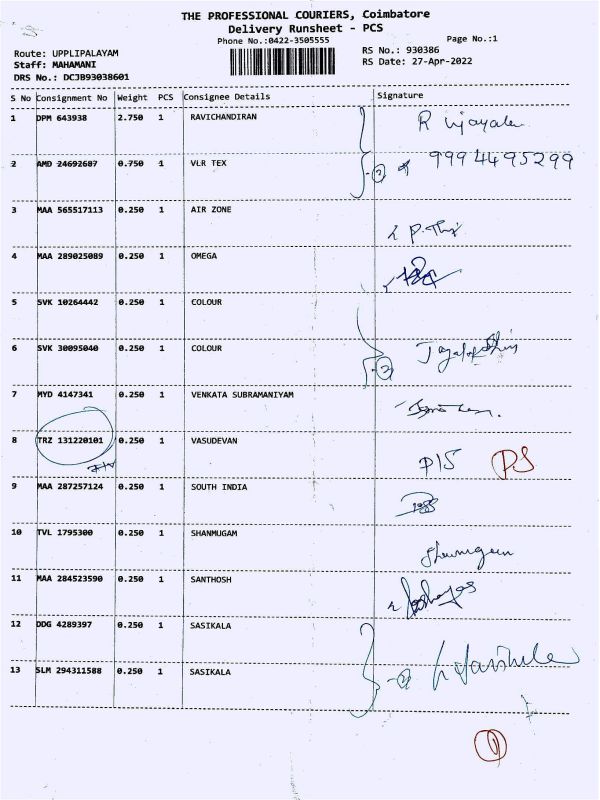 THE PROFESSIONAL COURIERS, Coimbatore
Delivery Runsheet - PCS
Phone No.:0422-3505555
Page No.:1
Route: UPPLIPALAYAM
Staff: MAHAMANI
DRS No.: DCJB93038601
RS No.: 930386
RS Date: 27-Apr-2022
S No Consignment No Weight PCS Consignee Details Signature
1 DPM 643938 2.750 1 RAVICHANDIRAN R
2 AMD 24692687 0.750 1 VLR TEX 2 9994495299
3 MAA 565517113 0.250 1 AIR ZONE
4 MAA 289025089 0.250 1 OMEGA
5 SVK 10264442 0.250 1 COLOUR
6 SVK 30095040 0.250 1 COLOUR 2
7 MYD 4147341 0.250 1 VENKATA SUBRAMANIYAM
8 TRZ 131220101 0.250 1 VASUDEVAN P/S PS
9 MAA 287257124 0.250 1 SOUTH INDIA
10 TVL 1795300 0.250 1 SHANMUGAM
11 MAA 284523590 0.250 1 SANTHOSH
12 DDG 4289397 0.250 1 SASIKALA
13 SLM 294311588 0.250 1 SASIKALA 2